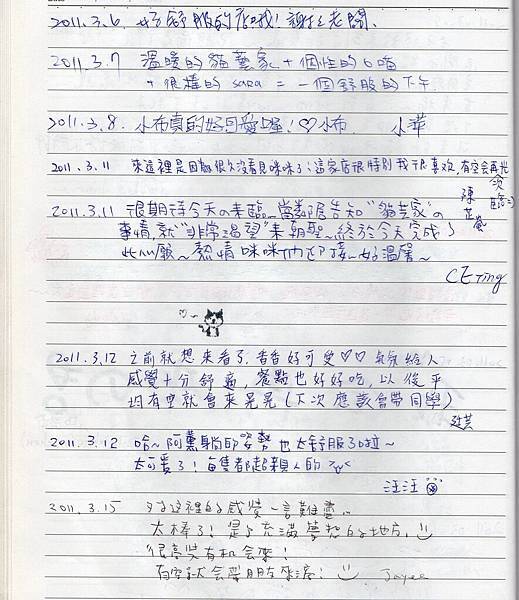 2011.3.6. 好舒服的店哦!謝謝老闆.
2011.3.7 溫暖的貓藝家+個性的
+很棒的 sara = 一個舒服的下午.
2011.3.8. 小布真的好可愛喔!♡小布 小華
2011.3.11 來這裡是因為很久沒看見咪咪了!這家店很特別我很喜歡,有空会再光
臨
陳
2011.3.11 很期待今天の來臨~當鄰居告知“貓芸家”の
事情,就“非常渴望”來朝聖~終於今天完成了
此心願~熱情咪咪の迎接~好溫馨~
CETing
2011.3.12 之前就想來看了.香香好可愛♡♡ 氣氛給人
感覺十分舒適,餐點也好好吃,以後平
均有空就會來晃晃(下次應該會帶同學)
2011.3.12 哈~阿薰躺的姿勢也太舒服了啦~
太可愛了!每隻都超親人的
汪汪
2011.3.15 對這裡的感覺一言難盡..
太棒了!是個充滿夢想的地方.
很高興有机会來!
有空就会帶朋友來湊! Joyee